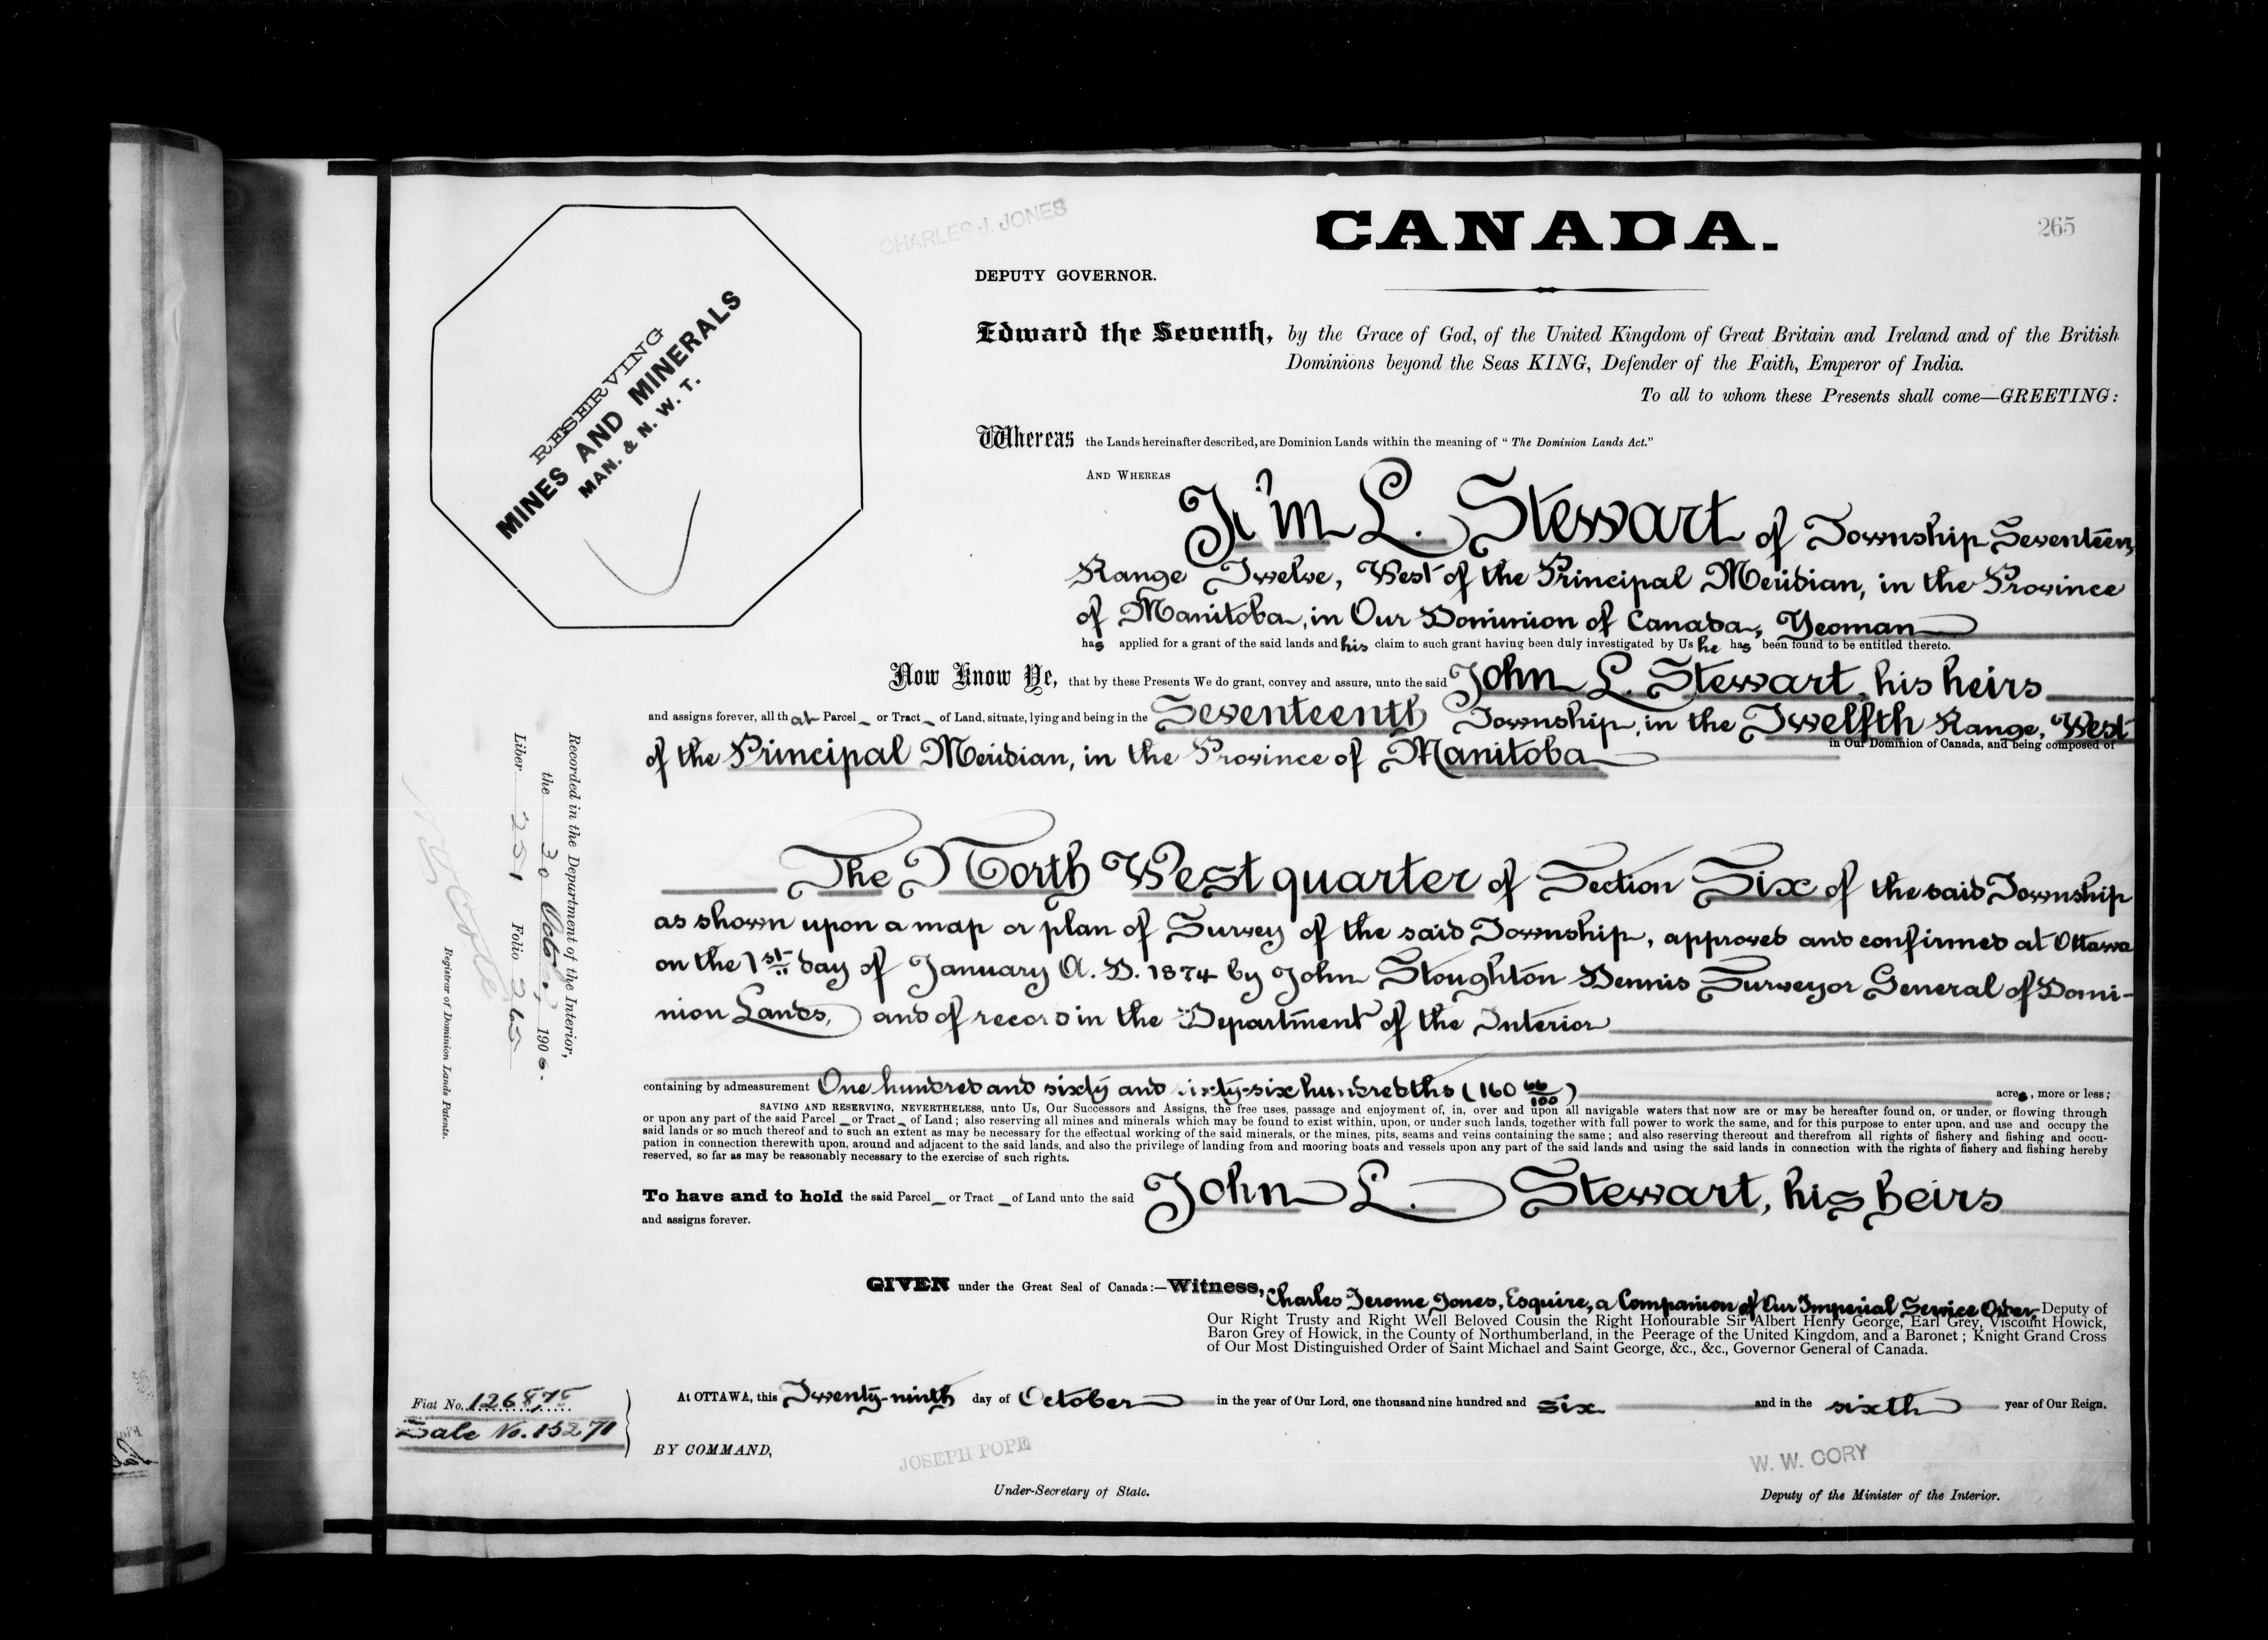 CANADA.
265
CHARLES J. JONES
DEPUTY GOVERNOR.
RESERVING
MINES AND MINERALS
MAN. & N. W. T.
Edward the Seventh, by the Grace of God, of the United Kingdom of Great Britain and Ireland and of the British
Dominions beyond the Seas KING, Defender of the Faith, Emperor of India.
To all to whom these Presents shall come—GREETING:
Whereas the Lands hereinafter described, are Dominion Lands within the meaning of "The Dominion Lands Act."
AND WHEREAS
L. Stewart of Township Seventeen,
Range Twelve, West of the Principal Meridian, in the Province
of Manitoba, in Our Dominion of Canada, Yeoman
has applied for a grant of the said lands and his claim to such grant having been duly investigated by Us he has been found to be entitled thereto.
Now Know Ye, that by these Presents We do grant, convey and assure, unto the said John L. Stewart, his heirs
and assigns forever, all that Parcel or Tract of Land, situate, lying and being in the Seventeenth Township, in the Twelfth Range, West
in Our Dominion of Canada, and being composed of
of the Principal Meridian, in the Province of Manitoba
The North West quarter of Section Six of the said Township
as shown upon a map or plan of Survey of the said Township, approved and confirmed at Ottawa
on the 1st day of January A. D. 1874 by John Stoughton Dennis Surveyor General of Domi-
nion Lands, and of record in the Department of the Interior
containing by admeasurement One hundred and sixty and sixty-six hundredths (160 66/100) acres, more or less;
SAVING AND RESERVING, NEVERTHELESS, unto Us, Our Successors and Assigns, the free uses, passage and enjoyment of, in, over and upon all navigable waters that now are or may be hereafter found on, or under, or flowing through
or upon any part of the said Parcel or Tract of Land; also reserving all mines and minerals which may be found to exist within, upon, or under such lands, together with full power to work the same, and for this purpose to enter upon, and use and occupy the
said lands or so much thereof and to such an extent as may be necessary for the effectual working of the said minerals, or the mines, pits, seams and veins containing the same; and also reserving thereout and therefrom all rights of fishery and fishing and occu-
pation in connection therewith upon, around and adjacent to the said lands, and also the privilege of landing from and mooring boats and vessels upon any part of the said lands and using the said lands in connection with the rights of fishery and fishing hereby
reserved, so far as may be reasonably necessary to the exercise of such rights.
To have and to hold the said Parcel or Tract of Land unto the said John L. Stewart, his heirs
and assigns forever.
GIVEN under the Great Seal of Canada:—Witness, Charles Jerome Jones, Esquire, a Companion of Our Imperial Service Order Deputy of
Our Right Trusty and Right Well Beloved Cousin the Right Honourable Sir Albert Henry George, Earl Grey, Viscount Howick,
Baron Grey of Howick, in the County of Northumberland, in the Peerage of the United Kingdom, and a Baronet; Knight Grand Cross
of Our Most Distinguished Order of Saint Michael and Saint George, &c., &c., Governor General of Canada.
At OTTAWA, this Twenty-ninth day of October in the year of Our Lord, one thousand nine hundred and six and in the sixth year of Our Reign.
BY COMMAND,
JOSEPH POPE
Under-Secretary of State.
W. W. CORY
Deputy of the Minister of the Interior.
Fiat No. 126878
Sale No. 15271
Recorded in the Department of the Interior,
the 30 Octbr., 1906.
Liber 251 Folio 265
Registrar of Dominion Lands Patents.